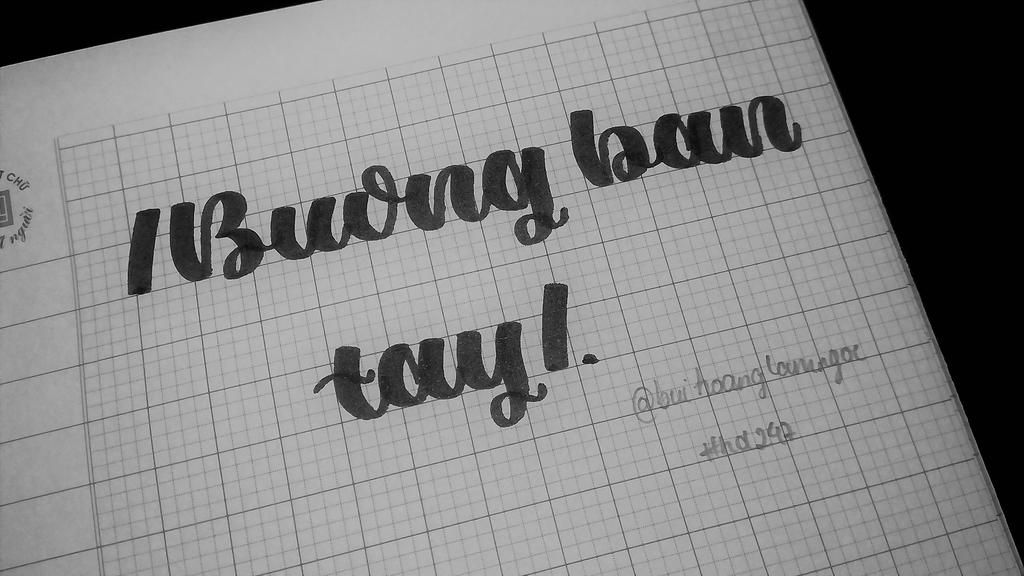 CHỮ
người
/Buơng ban
tay/.
@buihoanglamngoc
#hd247